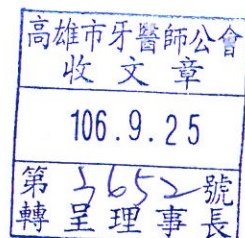 高雄市牙醫師公會
收文章
106.9.25
第3652號
轉呈理事長